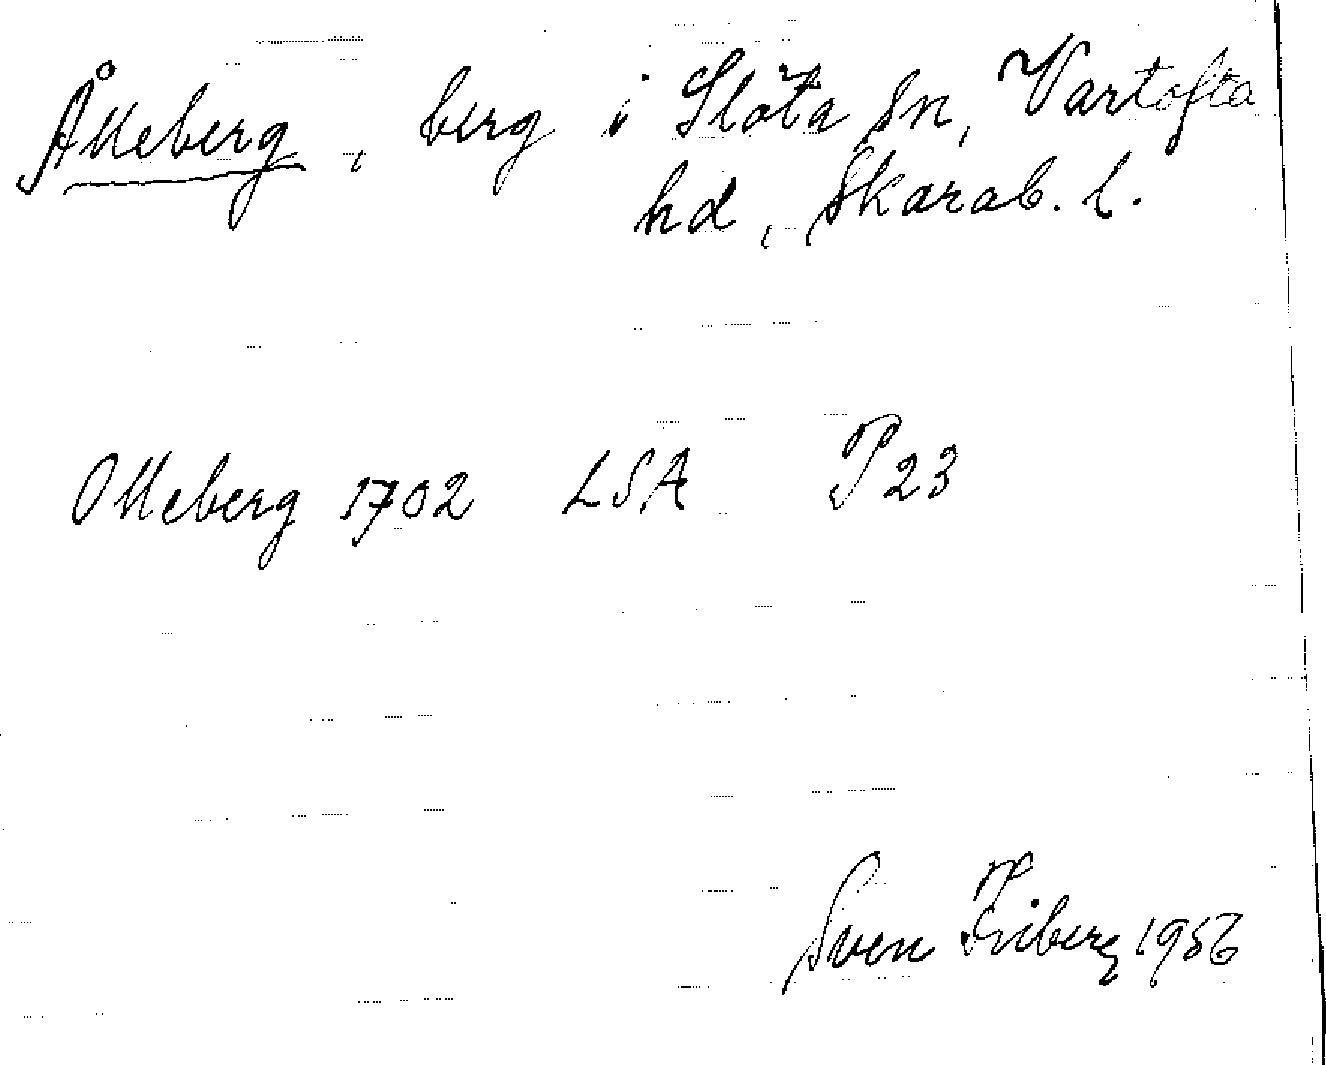 Ålleberg, berg i Slöta sn, Vartofta
hd, Skarab. l.
Olleberg 1702 LSA P 23
Sven Friberg 1956